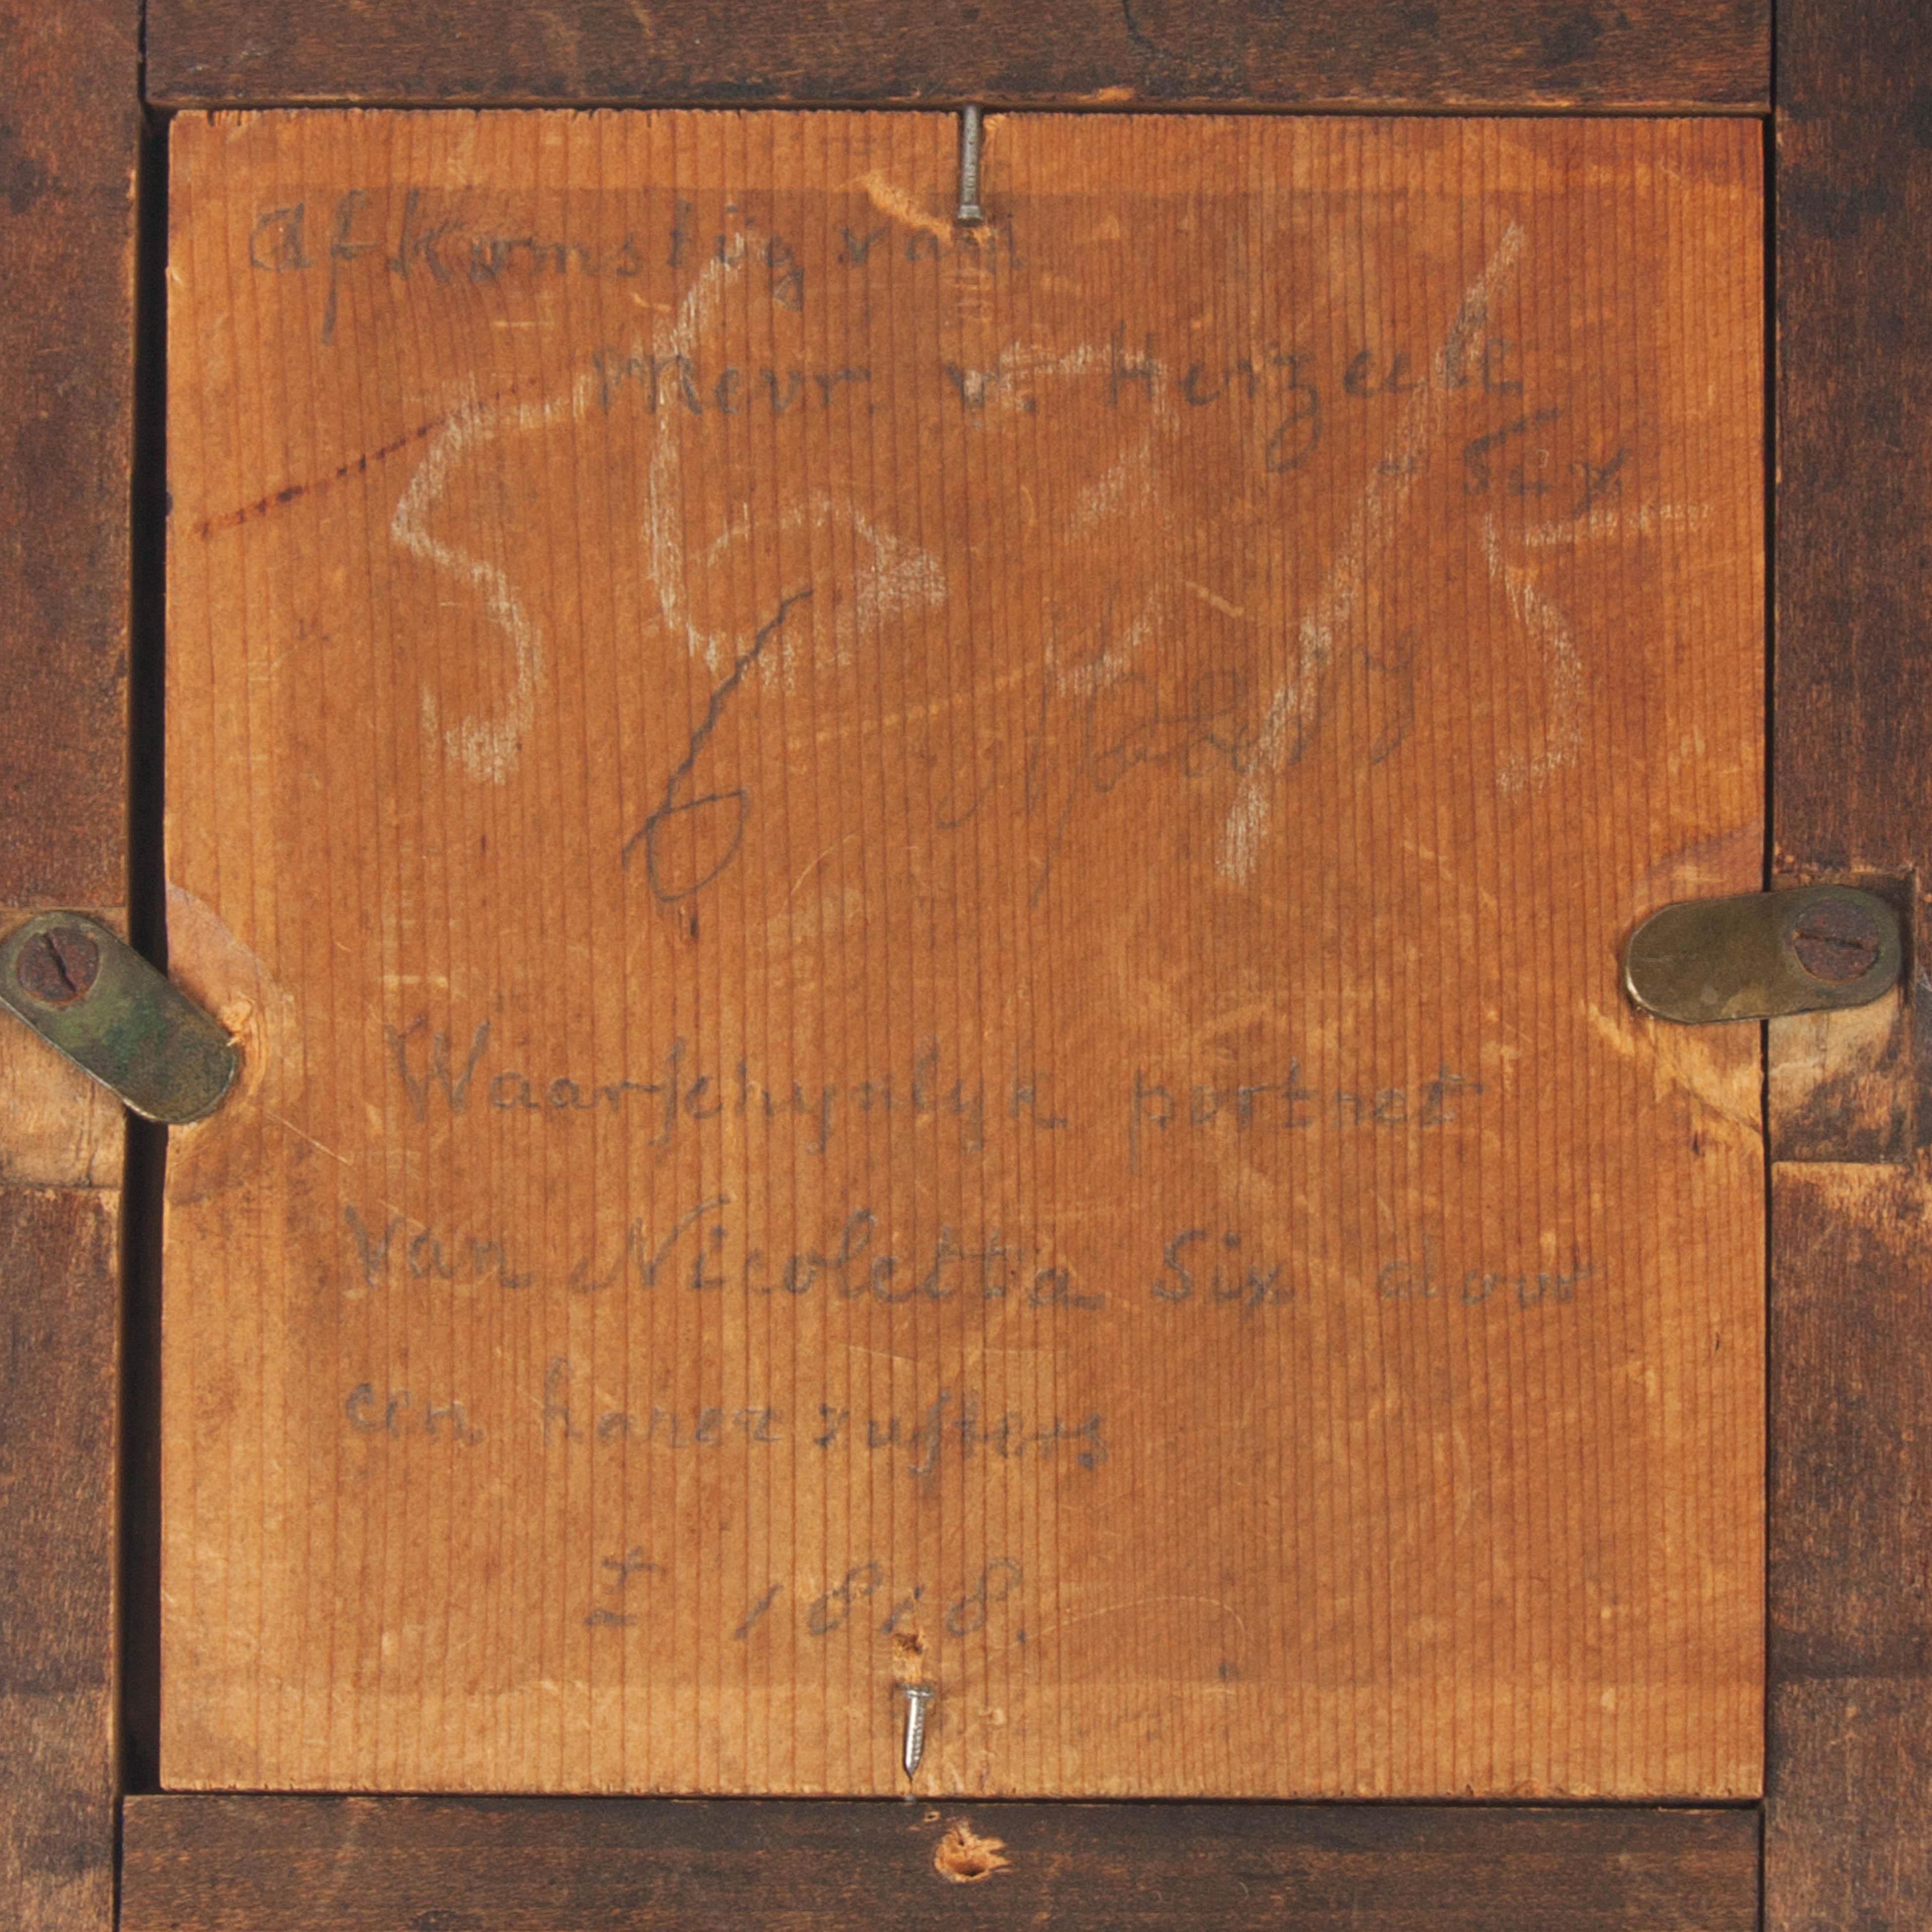 Afkomstig van
Mevr. v. Herzeele
- Six
567/5
Waarschynlyk portret
van Nicoletta Six door
een harer zusters
± 1818.